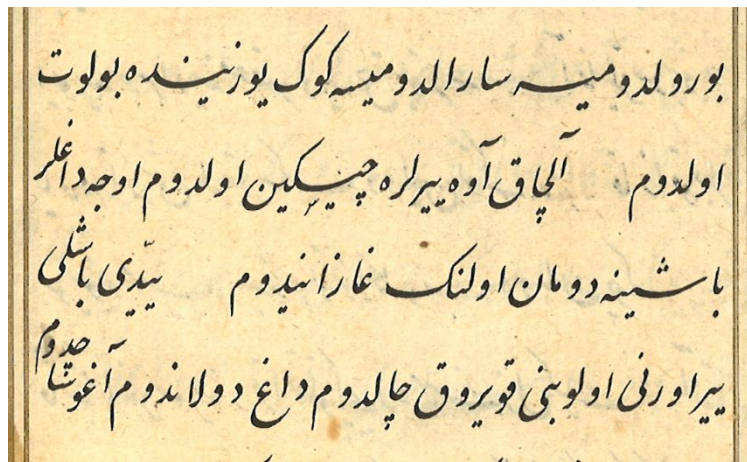 بورولدومیسه سارالدومیسه کوک یوزینده بولوت
اولدوم آلچاق آوه ییرلره چیسکین اولدوم اوجه داغلر
باشینه دومان اولنک غازاندوم ییدّی باشلی
ییر اورنی اولوبنی قویروق چالدوم داغ دولاندوم آغوشاجدوم